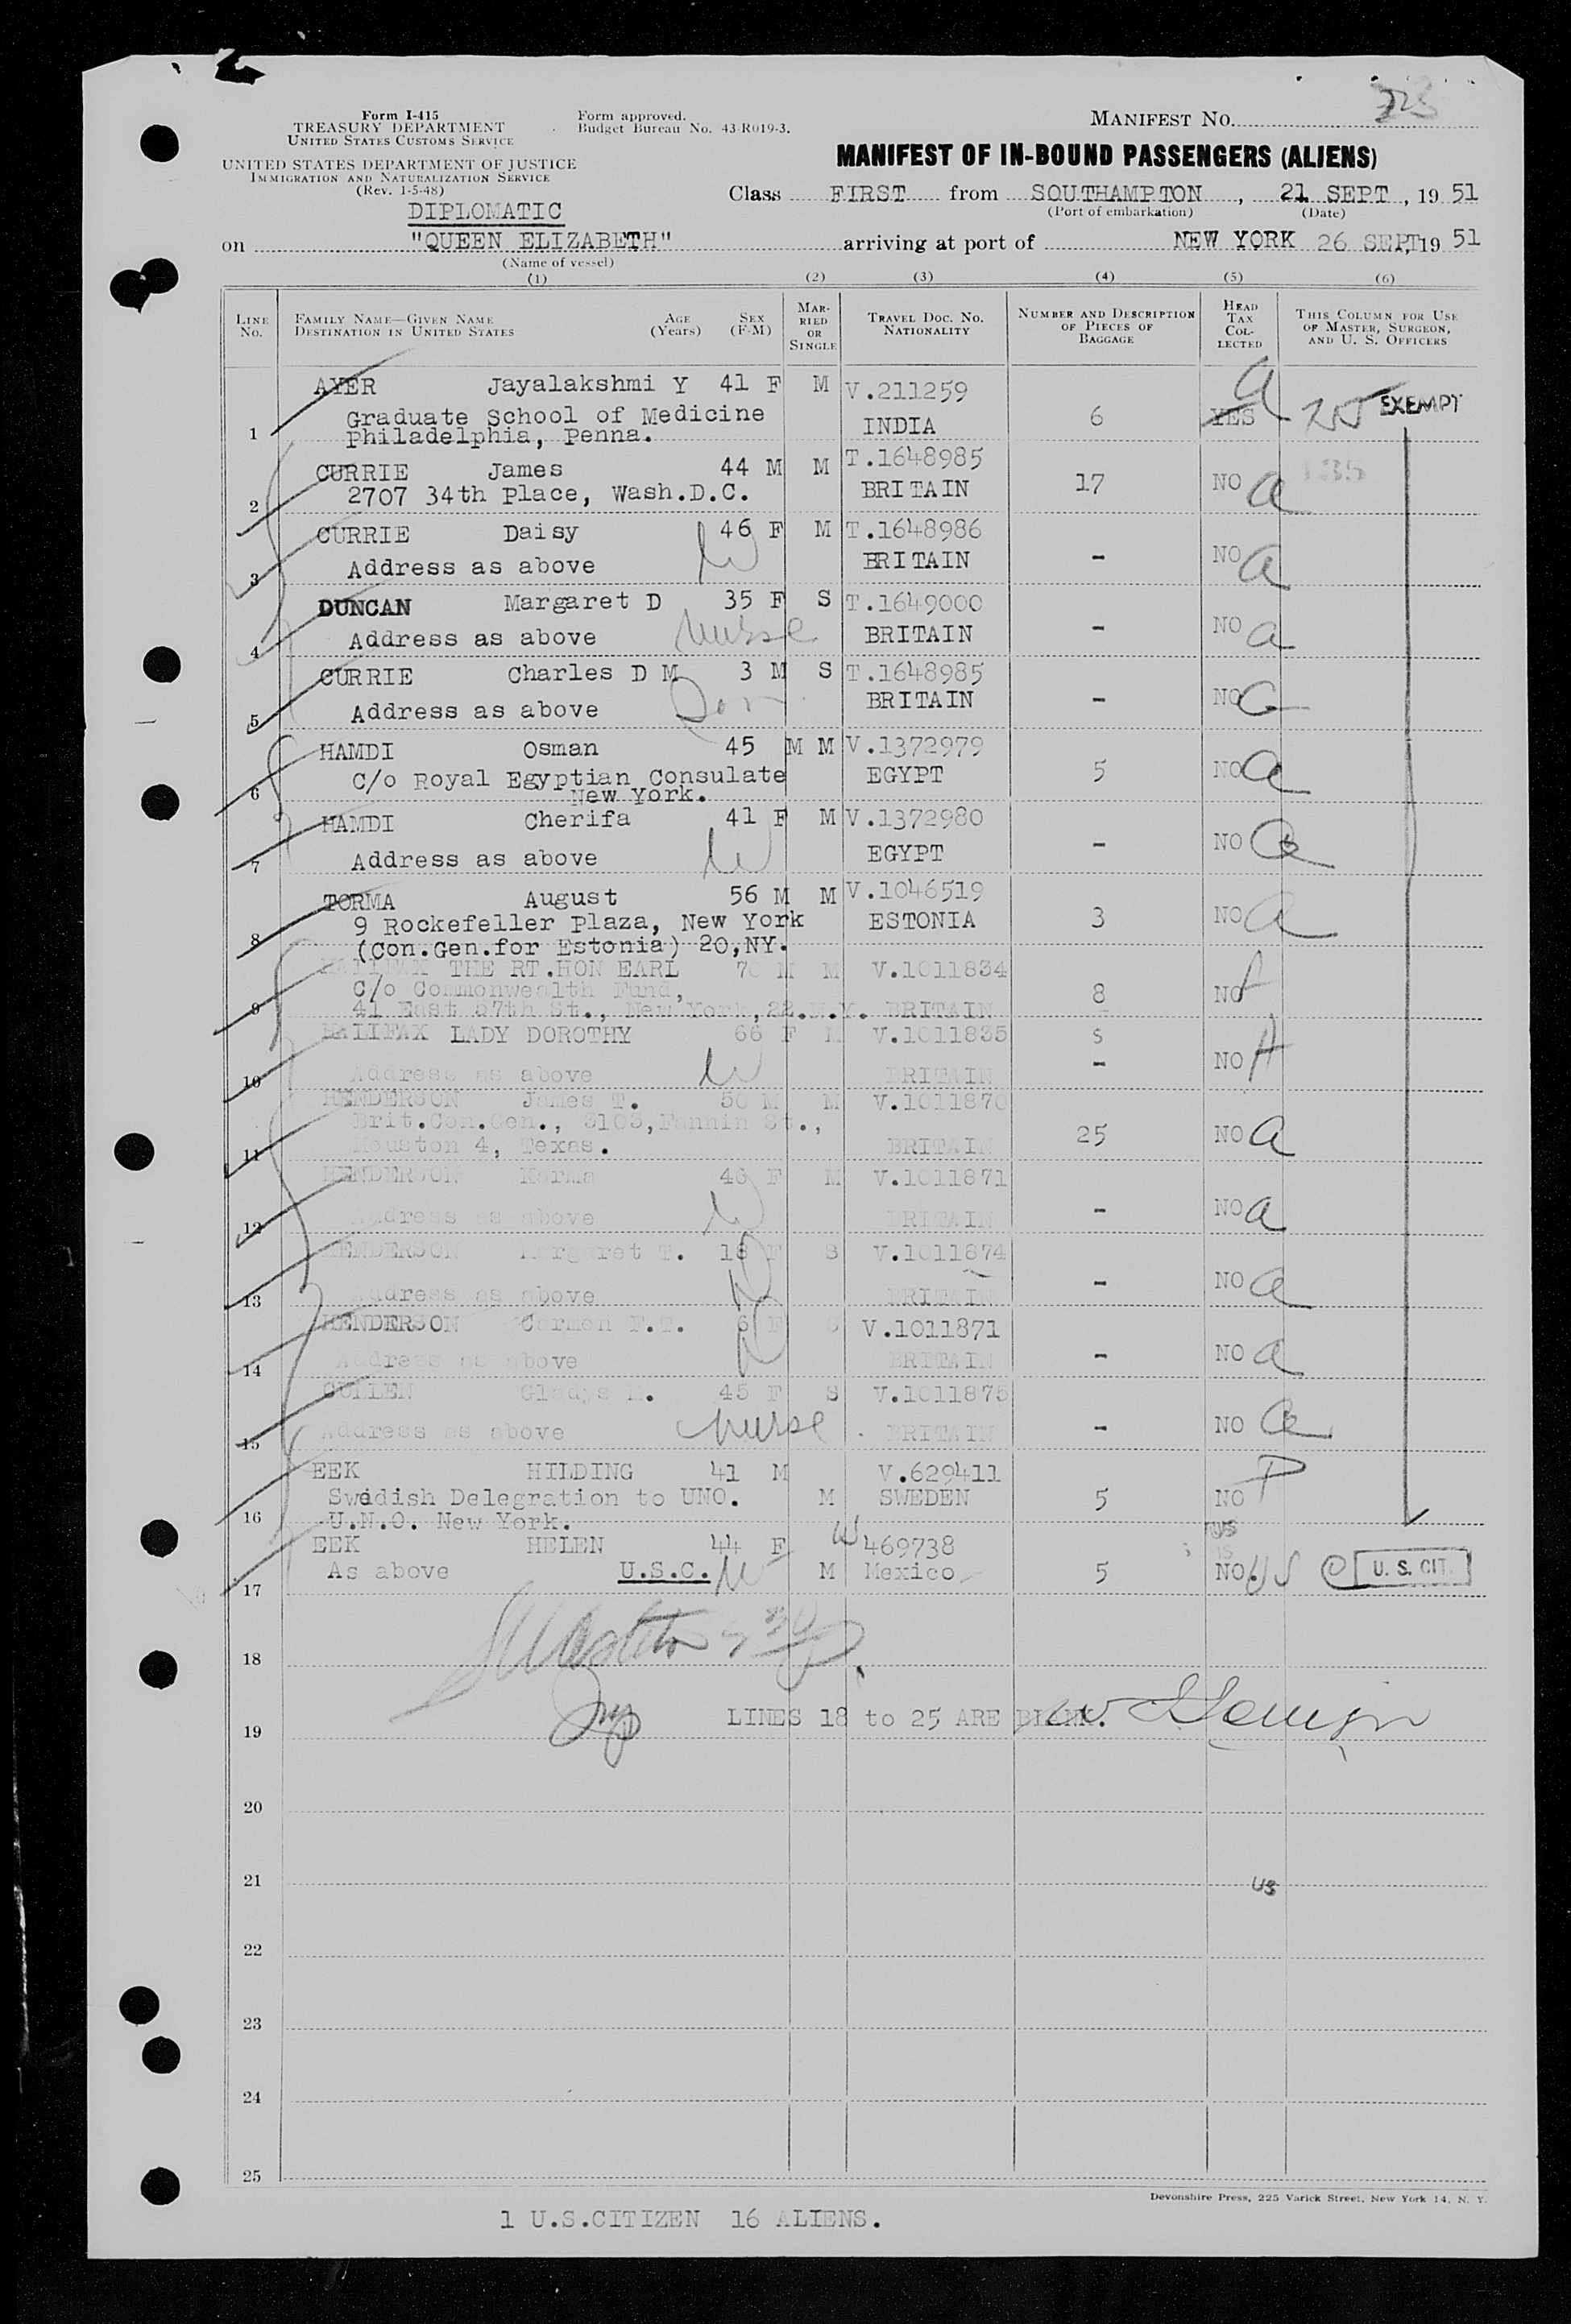 Form I-415
TREASURY DEPARTMENT
UNITED STATES CUSTOMS SERVICE
UNITED STATES DEPARTMENT OF JUSTICE
IMMIGRATION AND NATURALIZATION SERVICE
(Rev. 1-5-48)
Form approved.
Budget Bureau No. 43-R019-3.
MANIFEST NO.
MANIFEST OF IN-BOUND PASSENGERS (ALIENS)
Class FIRST from SOUTHAMPTON, 21 SEPT, 19 51
(Port of embarkation) (Date)
DIPLOMATIC
on "QUEEN ELIZABETH" arriving at port of NEW YORK 26 SEPT, 19 51
(Name of vessel)
(1) (2) (3) (4) (5) (6)
LINE NO. FAMILY NAME—GIVEN NAME DESTINATION IN UNITED STATES AGE (Years) SEX (F-M) MARRIED OR SINGLE TRAVEL DOC. NO. NATIONALITY NUMBER AND DESCRIPTION OF PIECES OF BAGGAGE HEAD TAX COLLECTED THIS COLUMN FOR USE OF MASTER, SURGEON, AND U. S. OFFICERS
AYER Jayalakshmi Y 41 F M V.211259 a
Graduate School of Medicine INDIA 6 YES EXEMPT
1 Philadelphia, Penna.
CURRIE James 44 M M T.1648985
2 2707 34th Place, Wash.D.C. BRITAIN 17 NO a
CURRIE Daisy 46 F M T.1648986
3 Address as above W BRITAIN - NO a
DUNCAN Margaret D 35 F S T.1649000
4 Address as above nurse BRITAIN - NO a
CURRIE Charles D M 3 M S T.1648985
5 Address as above Son BRITAIN - NO a
HAMDI Osman 45 M M V.1372979
6 C/o Royal Egyptian Consulate EGYPT 5 NO a
New York.
HAMDI Cherifa 41 F M V.1372980
7 Address as above W EGYPT - NO a
TORMA August 56 M M V.1046519
9 Rockefeller Plaza, New York ESTONIA 3 NO a
8 (Con.Gen.for Estonia) 20,NY.
HALIFAX THE RT.HON EARL 70 M M V.1011834
C/o Commonwealth Fund, 8 NO A
9 41 East 57th St., New York,22.N.Y. BRITAIN
HALIFAX LADY DOROTHY 66 F M V.1011835 s
10 Address as above W BRITAIN - NO A
HENDERSON James T. 50 M M V.1011870
Brit.Con.Gen., 3103,Fannin St., 25 NO a
11 Houston 4, Texas. BRITAIN
HENDERSON Karma 46 F M V.1011871
12 Address as above W BRITAIN - NO a
HENDERSON Margaret T. 18 F S V.1011874
13 Address as above D BRITAIN - NO a
HENDERSON Carmen F.T. 6 F S V.1011871
14 Address as above D BRITAIN - NO a
CULLEN Gladys M. 45 F S V.1011875
15 Address as above nurse BRITAIN - NO a
EEK HILDING 41 M V.629411
Swedish Delegration to UNO. M SWEDEN 5 NO P
16 U.N.O. New York.
EEK HELEN 44 F W 469738 US
17 As above U.S.C. W M Mexico 5 NO. US U. S. CIT.
18
19 LINES 18 to 25 ARE BLANK.
20
21 US
22
23
24
25
Devonshire Press, 225 Varick Street, New York 14, N. Y.
1 U.S.CITIZEN 16 ALIENS.